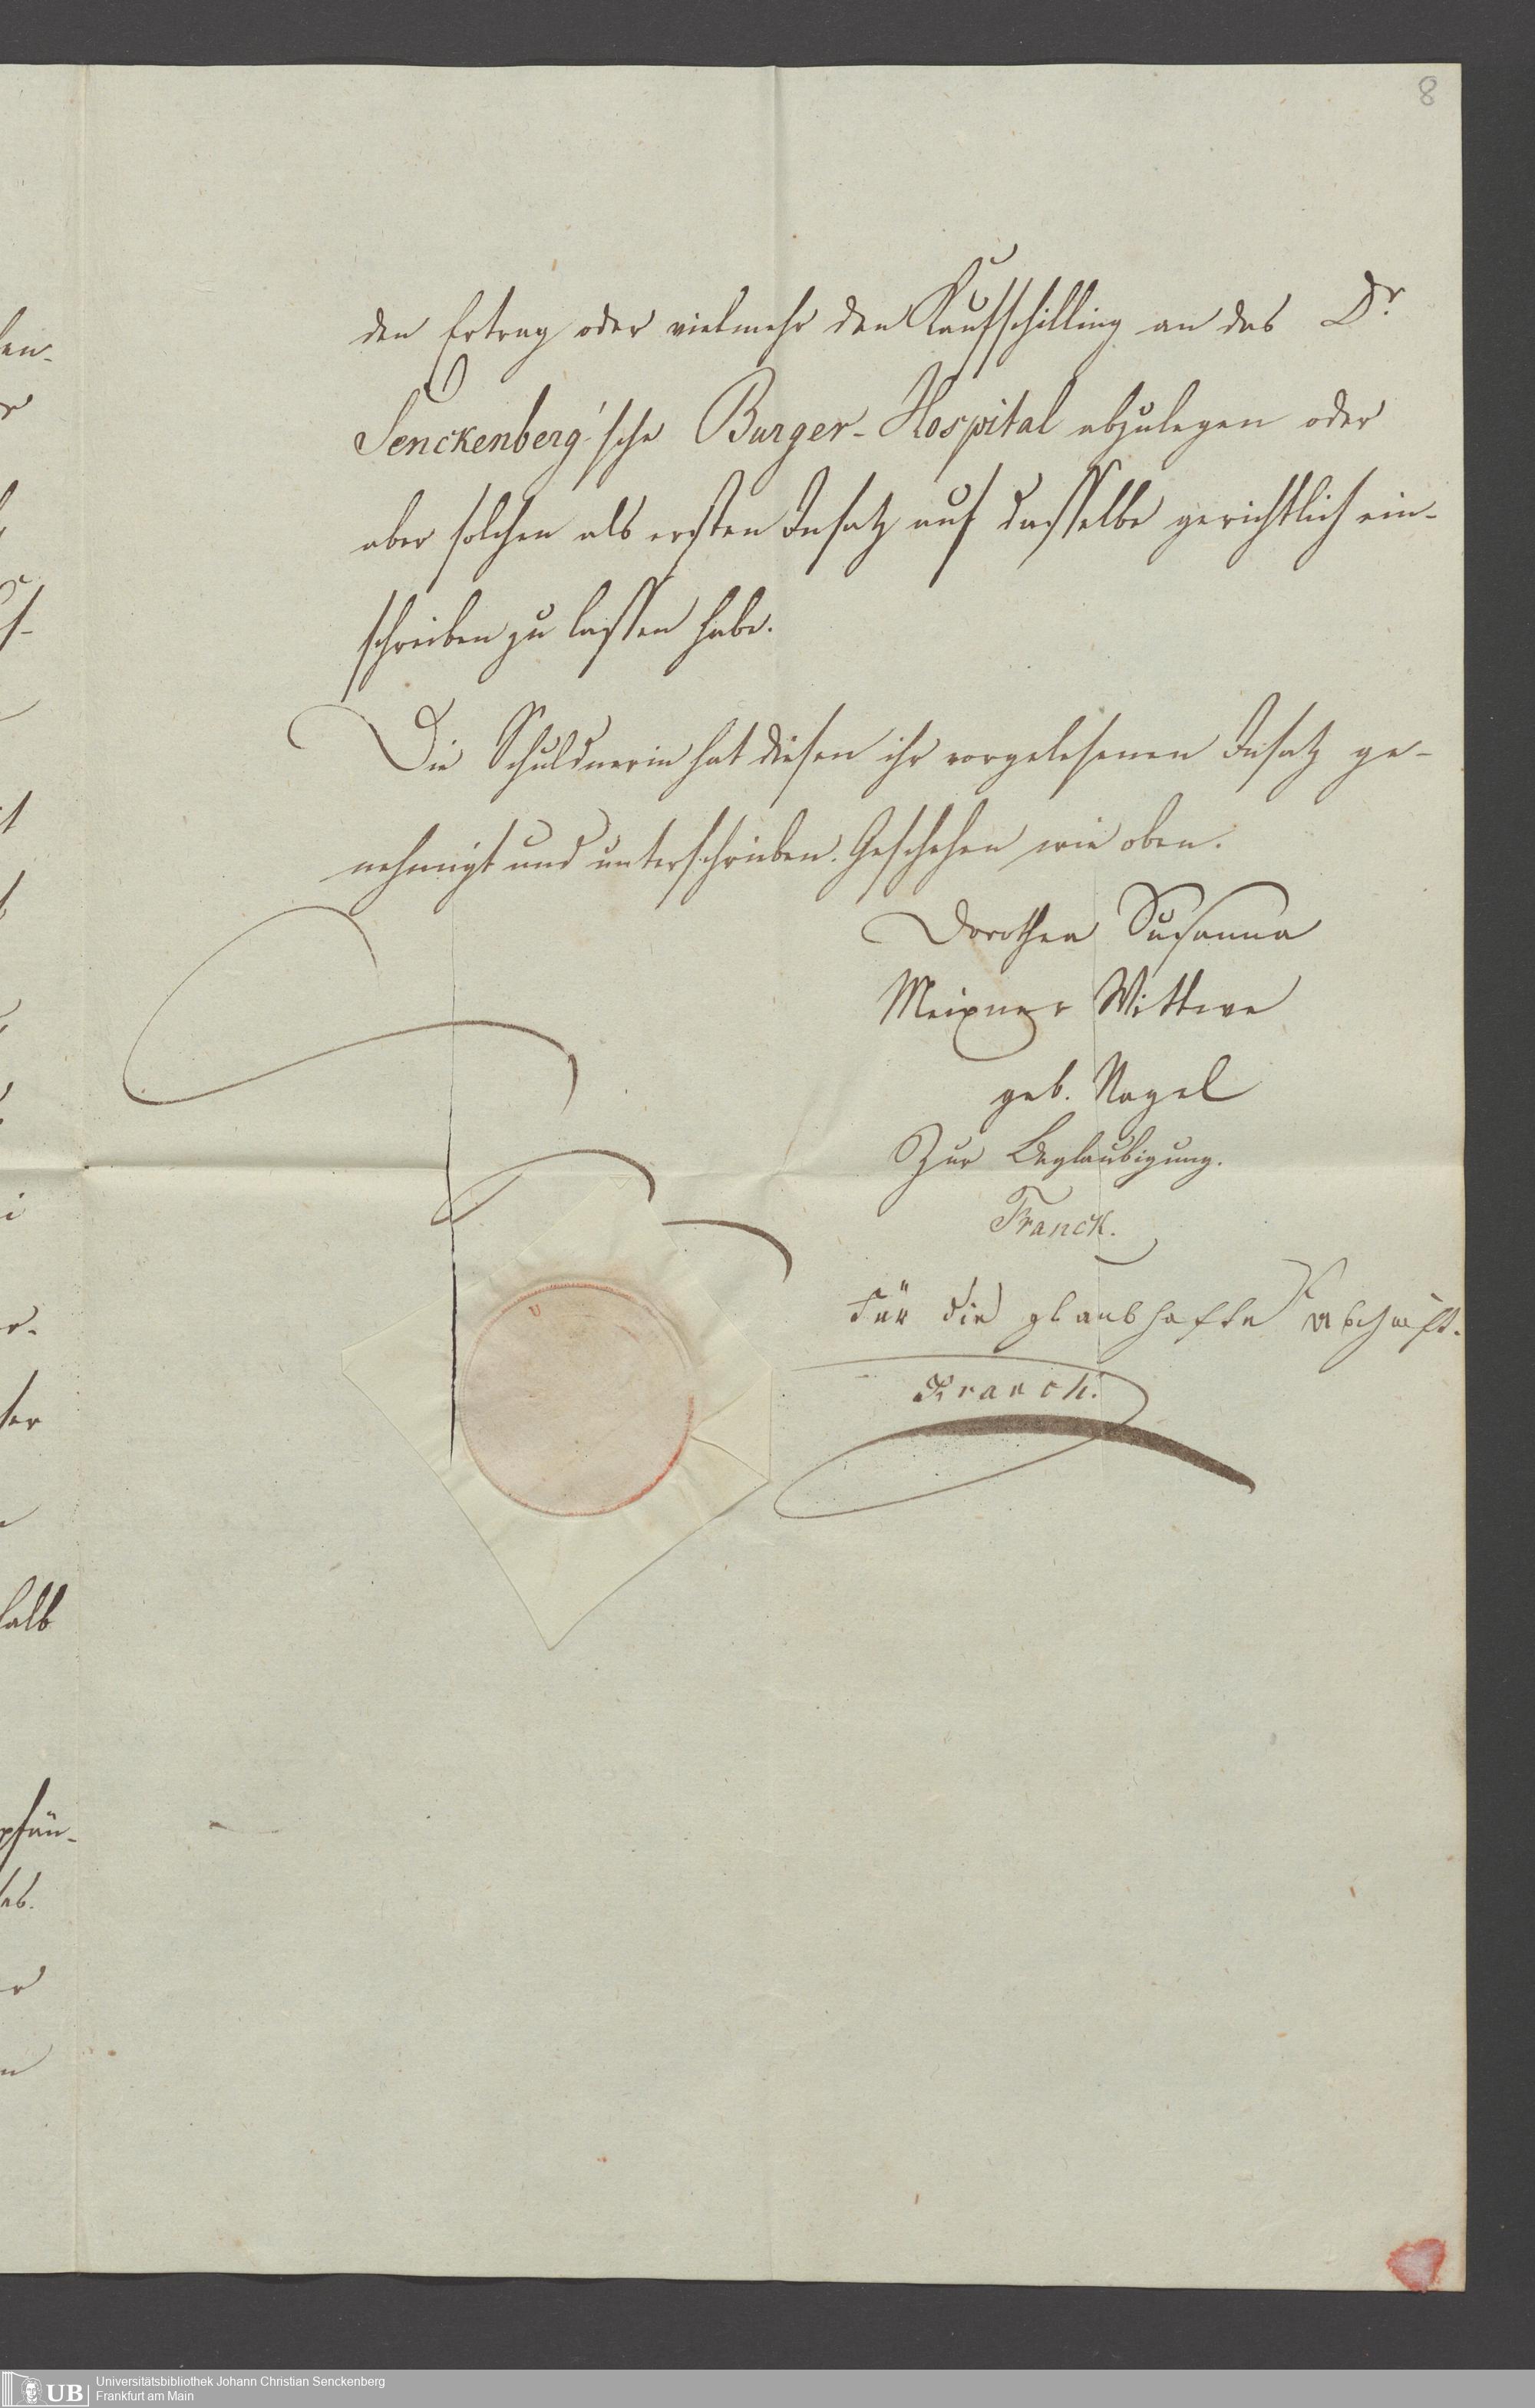 8
den Ertrag oder vielmehr den Kaufschilling an das Dr
Senckenberg'sche Burger-Hospital abzulegen oder
aber solchen als ersten Insatz auf dasselbe gerichtlich ein-
schreiben zu lassen habe.
Die Schuldnerin hat diesen ihr vorgelesenen Insatz ge-
nehmigt und unterschrieben. Geschehen wie oben.
Dorothea Susanna
Meixner Wittwe
geb. Nagel
Zur Beglaubigung.
Franck.
Für die glaubhafte Abschrift.
Franck.
UB
Universitätsbibliothek Johann Christian Senckenberg
Frankfurt am Main